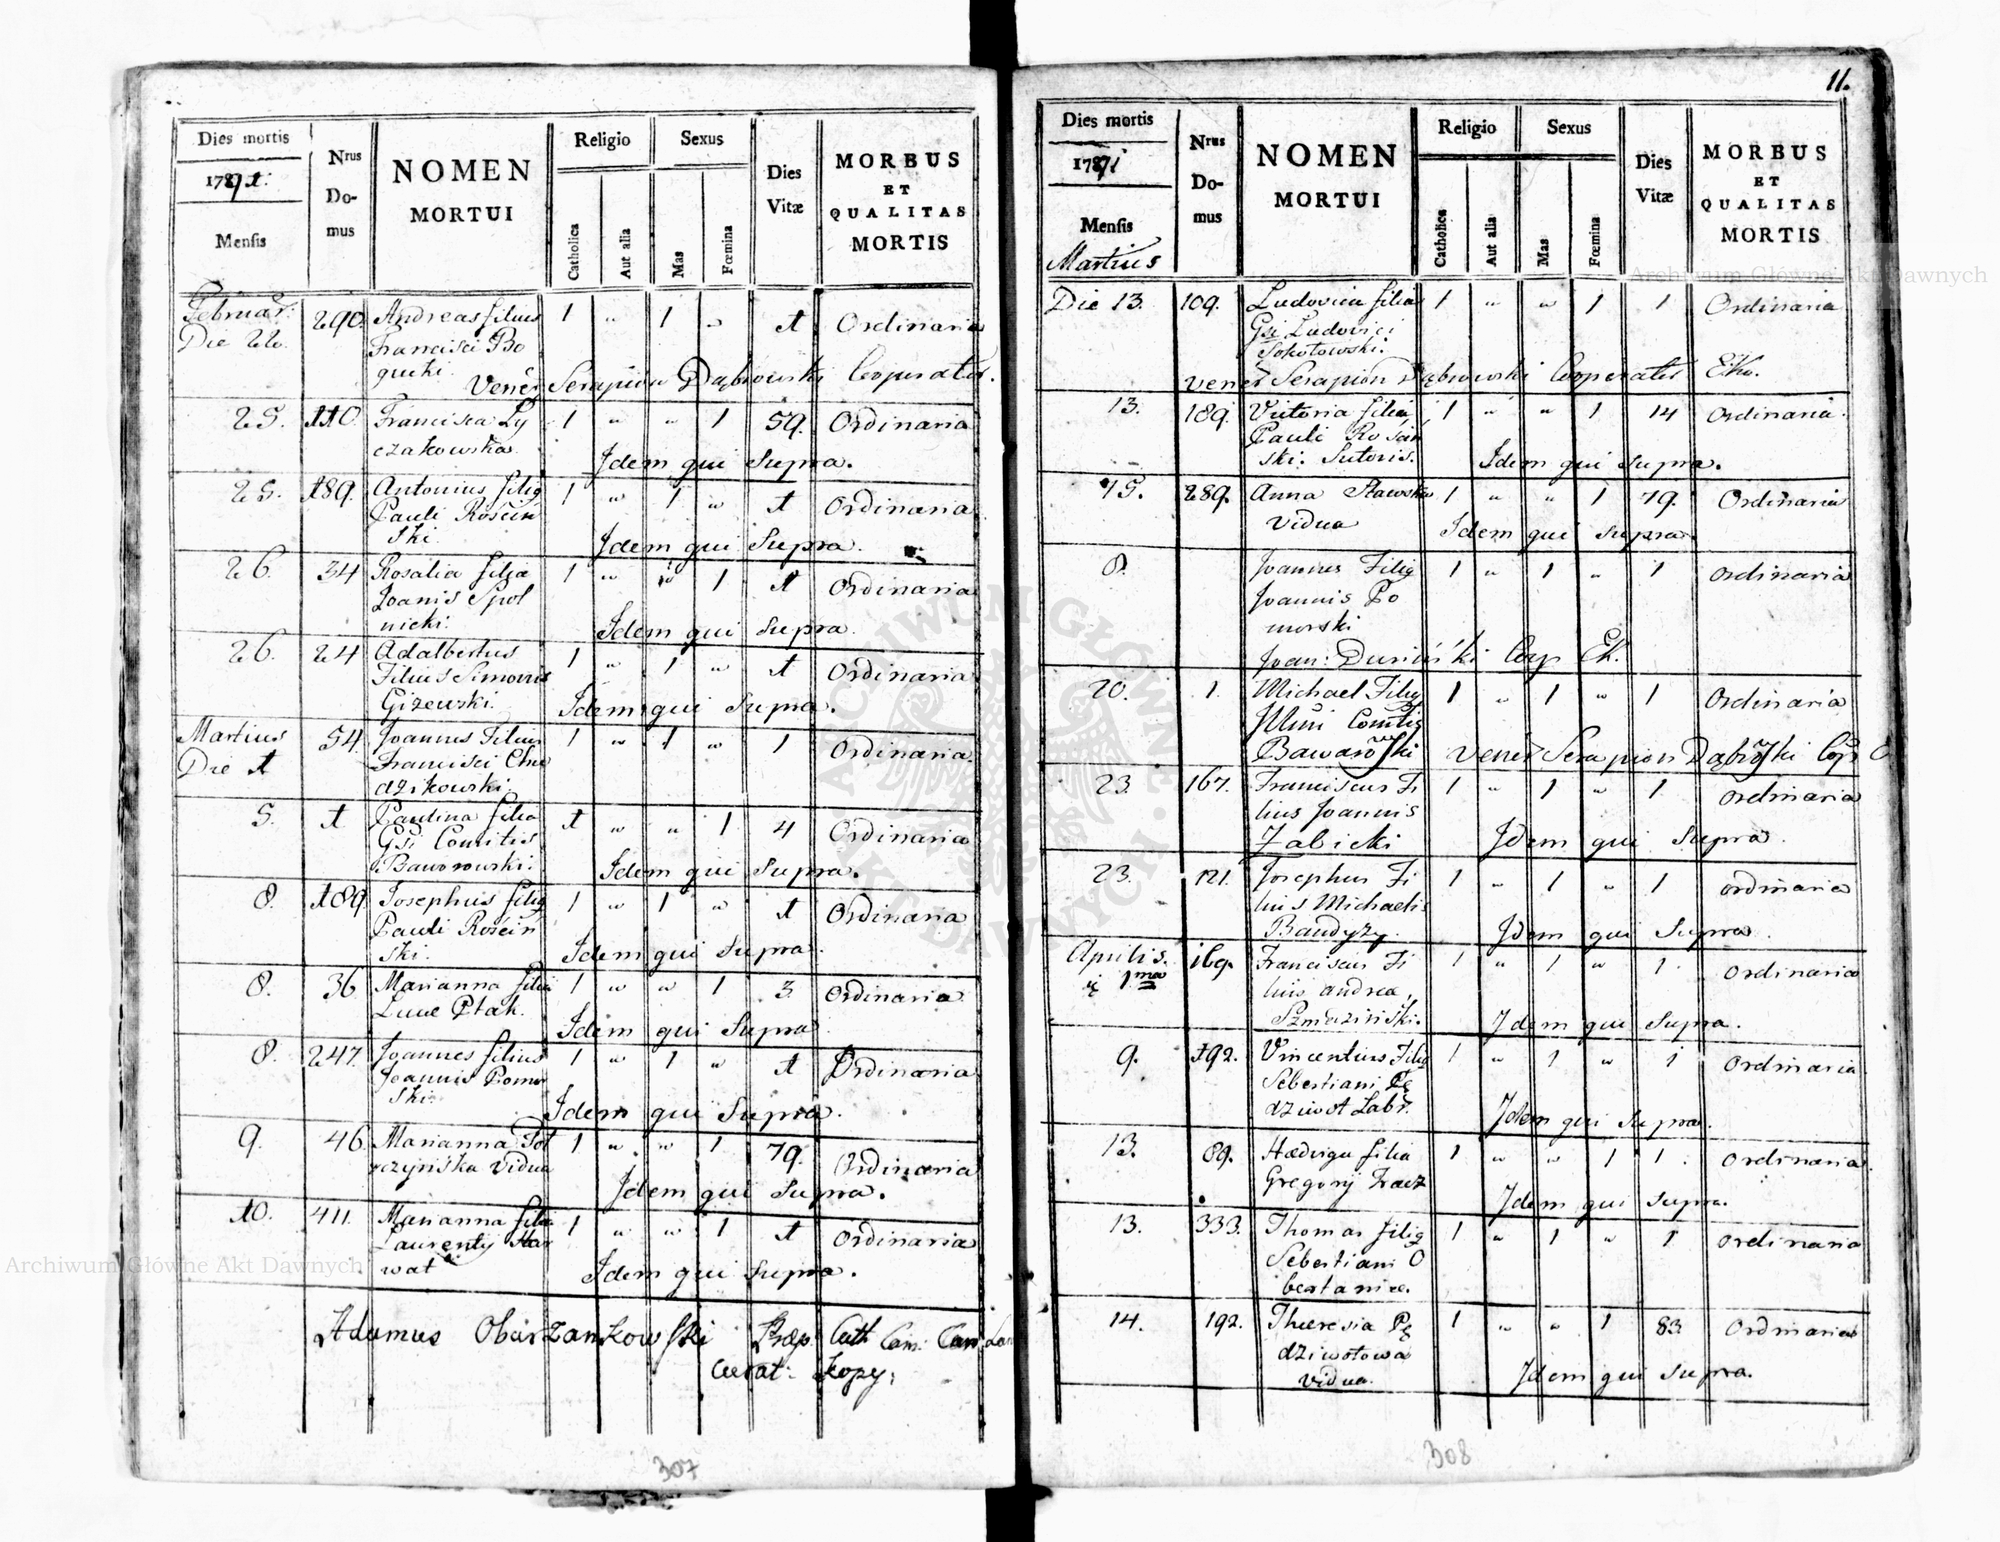 Dies mortis
Nrus
Do-
mus
NOMEN
MORTUI
Religio
Sexus
Catholica
Aut alia
Mas
Fœmina
Dies
Vitæ
MORBUS
ET
QUALITAS
MORTIS
Mensis
Februar:
Die 22. 290. Andreas filius 1 " 1 " 1 Ordinaria
Francisci Bo
gucki.
Serapion Dąbrowski Cooperator.
25. 110. Francisca Ly 1 " " 1 59. Ordinaria
czakowska.
Idem qui Supra.
25. 189. Antonius filig 1 " 1 " 1 Ordinaria
Pauli Rościń
ski.
Idem qui Supra.
26. 34 Rosalia filia 1 " " 1 1 Ordinaria
Joanis Spol
nicki.
Idem qui Supra.
26. 24 Adalbertus 1 " 1 " 1 Ordinaria
Filius Simonis
Gizewski.
Idem qui Supra.
Martius 54. Joannes Filius 1 " 1 " 1 Ordinaria
Die 1 Francisci Chu
dzikowski.
5. 1 Paulina filia 1 " " 1 4 Ordinaria
Gsi Comitis
Baworowski.
Idem qui Supra.
8. 189 Josephus filig 1 " 1 " 1 Ordinaria
Pauli Rościn
ski.
Idem qui Supra.
8. 36 Marianna filia 1 " " 1 3. Ordinaria
Lucae Ptak.
Idem qui Supra
8. 247. Joannes filius 1 " 1 " 1 Ordinaria
Joannis Pomor
ski.
Idem qui Supra.
9. 46 Marianna 1 " " 1 79. Ordinaria
Vidua
Idem qui Supra.
10. 411. Marianna filia 1 " " 1 1 Ordinaria
Laurentÿ Har
wat
Idem qui Supra.
Adamus Obarzankowski Præp: Cath
Curat:
307
11.
Dies mortis
1791
Mensis
Martius
Nrus
Do-
mus
NOMEN
MORTUI
Religio
Sexus
Catholica
Aut alia
Mas
Fœmina
Dies
Vitæ
MORBUS
ET
QUALITAS
MORTIS
Die 13. 109. Ludovica filia 1 " " 1 1 Ordinaria
Gsi Ludovici
Sokołowski.
Serapion Dąbrowski Cooperator
13. 189. Victoria filia 1 " " 1 14 Ordinaria
Pauli Rościń
ski. Sutoris.
Idem qui Supra.
15. 289. Anna Stawska 1 " " 1 79. Ordinaria
Vidua
Idem qui supra
8. Joannes Filig 1 " 1 " 1 Ordinaria
Joannis Po
morski
Joan: Duriński Coop
20. 1. Michael Filig 1 " 1 " 1 Ordinaria
Illmi Comitis
Baworowski
Serapion Dąbrowski
23. 167. Franciscus Fi 1 " 1 " 1 Ordinaria
lius Joannis
Zabicki
Idem qui Supra.
23. 121. Josephus Fi 1 " 1 " 1 ordinaria
lius Michaelis
Bandyzy.
Idem qui Supra.
Aprilis. 169. Franciscus Fi 1 " 1 " 1. Ordinaria
1ma lius andrea
Idem qui Supra.
9. 192. Vincentius Filig 1 " 1 " 1 Ordinaria
Sebestiani Pę
dziwot Labr.
Idem qui supra.
13. 89. Hædvigu filia 1 " " 1 1. Ordinaria
Gregorÿ
Idem qui supra.
13. 333. Thomas filig 1 " 1 " 1 ordinaria
Sebestiani O
14. 192. Theresia Pę 1 " " 1 83 Ordinaria
dziwotowa
Vidua.
Idem qui supra.
308
Archiwum Główne Akt Dawnych
Archiwum Główne Akt Dawnych
ARCHIWUM GŁÓWNE AKT DAWNYCH